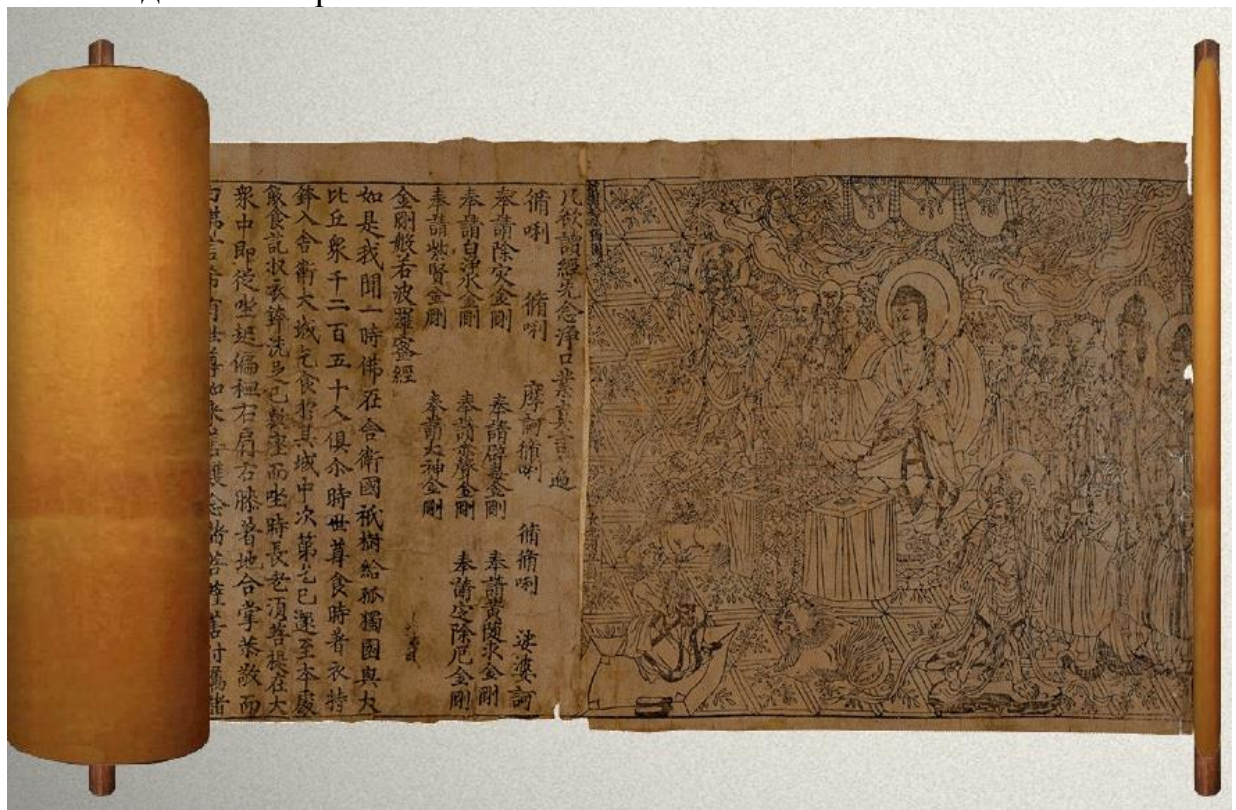 凡欲讀經先念淨口業真言遍
脩唎 脩唎 摩訶脩唎 脩脩唎 娑婆訶
奉請除灾金剛 奉請辟毒金剛 奉請黃随求金剛
奉請白淨水金剛 奉請赤聲金剛 奉請定除厄金剛
奉請紫賢金剛 奉請大神金剛
金剛般若波羅蜜經
如是我聞一時佛在舍衛國祇樹給孤獨園與大
比丘衆千二百五十人俱尒時世尊食時著衣持
鉢入舍衛大城乞食於其城中次第乞已還至本處
飯食訖收衣鉢洗足已敷座而坐時長老須菩提在大
衆中即從坐起偏袒右肩右膝著地合掌恭敬而
白佛言希有世尊如來善護念諸菩薩善付囑諸